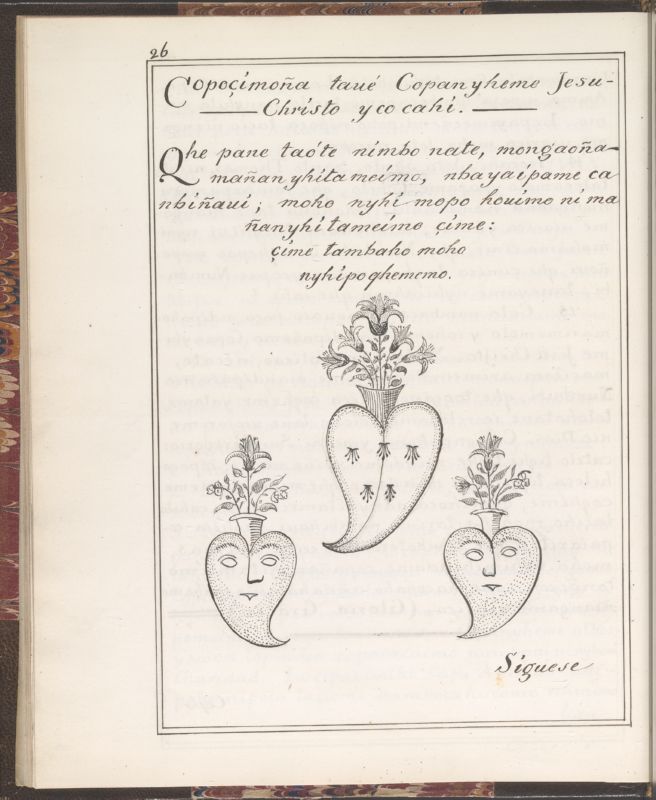 26
Copoçimoña taué Copanyheme Jesu-
Christo y co cahi.
Qhe pane taóte nimbo nate, mongaoña-
mañanyhitameimo, nbayaipame ca
nbiñaui; moho nyhi mopo houimo ni ma
ñanyhitameimo çime:
çime tambaho moho
nyhipoqhememo.
Siguese